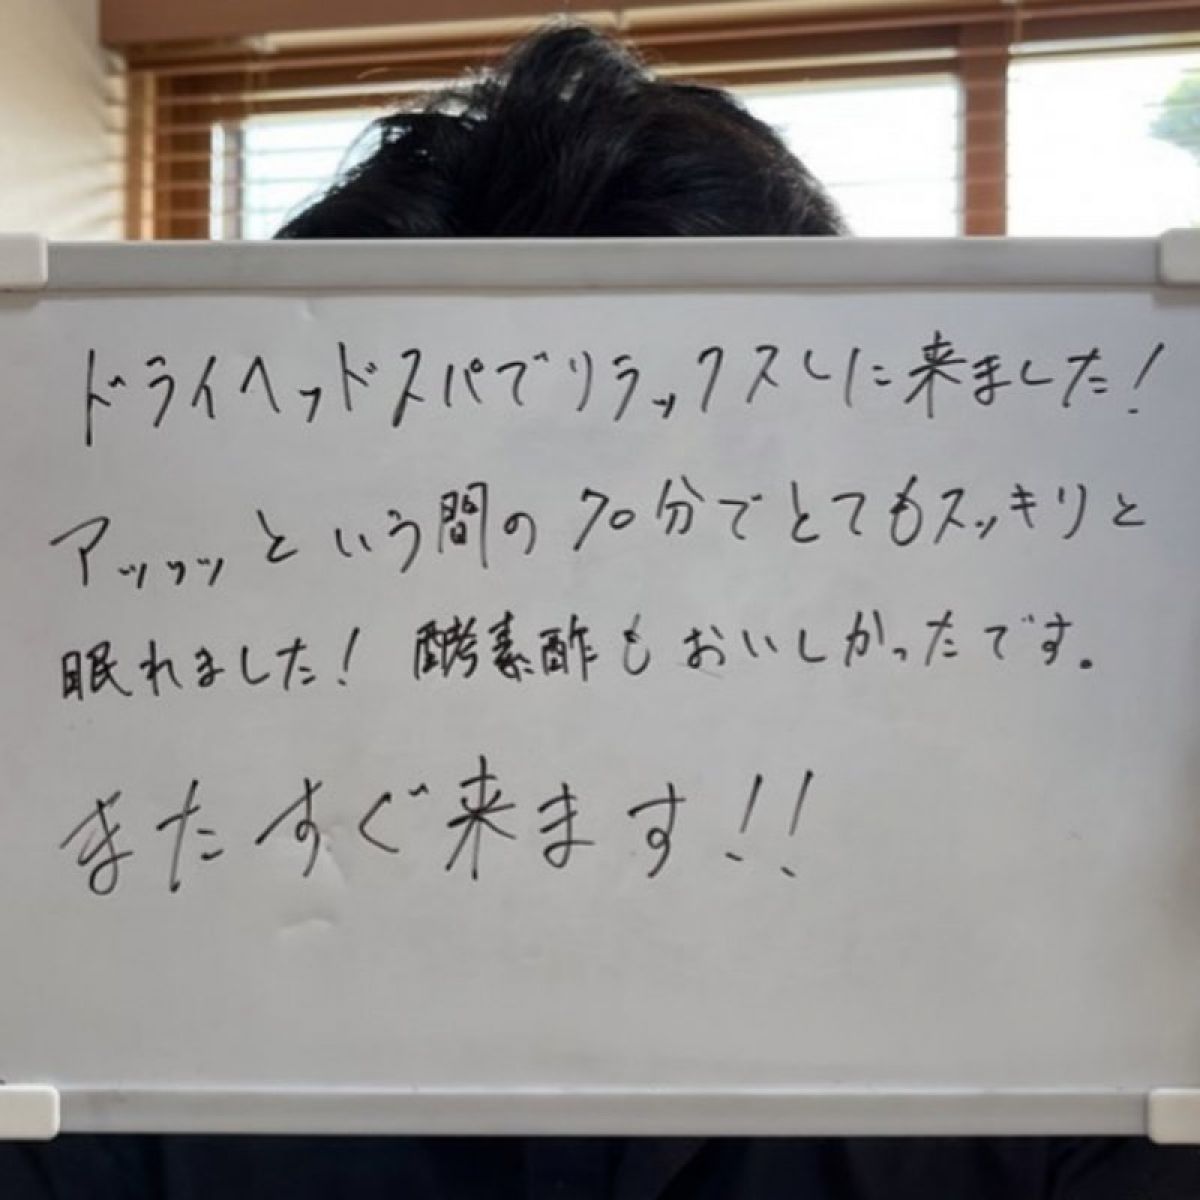 ドライヘッドスパでリラックスしに来ました!
アッッッという間の70分でとてもスッキリと
眠れました! 酵素酢もおいしかったです。
またすぐ来ます!!